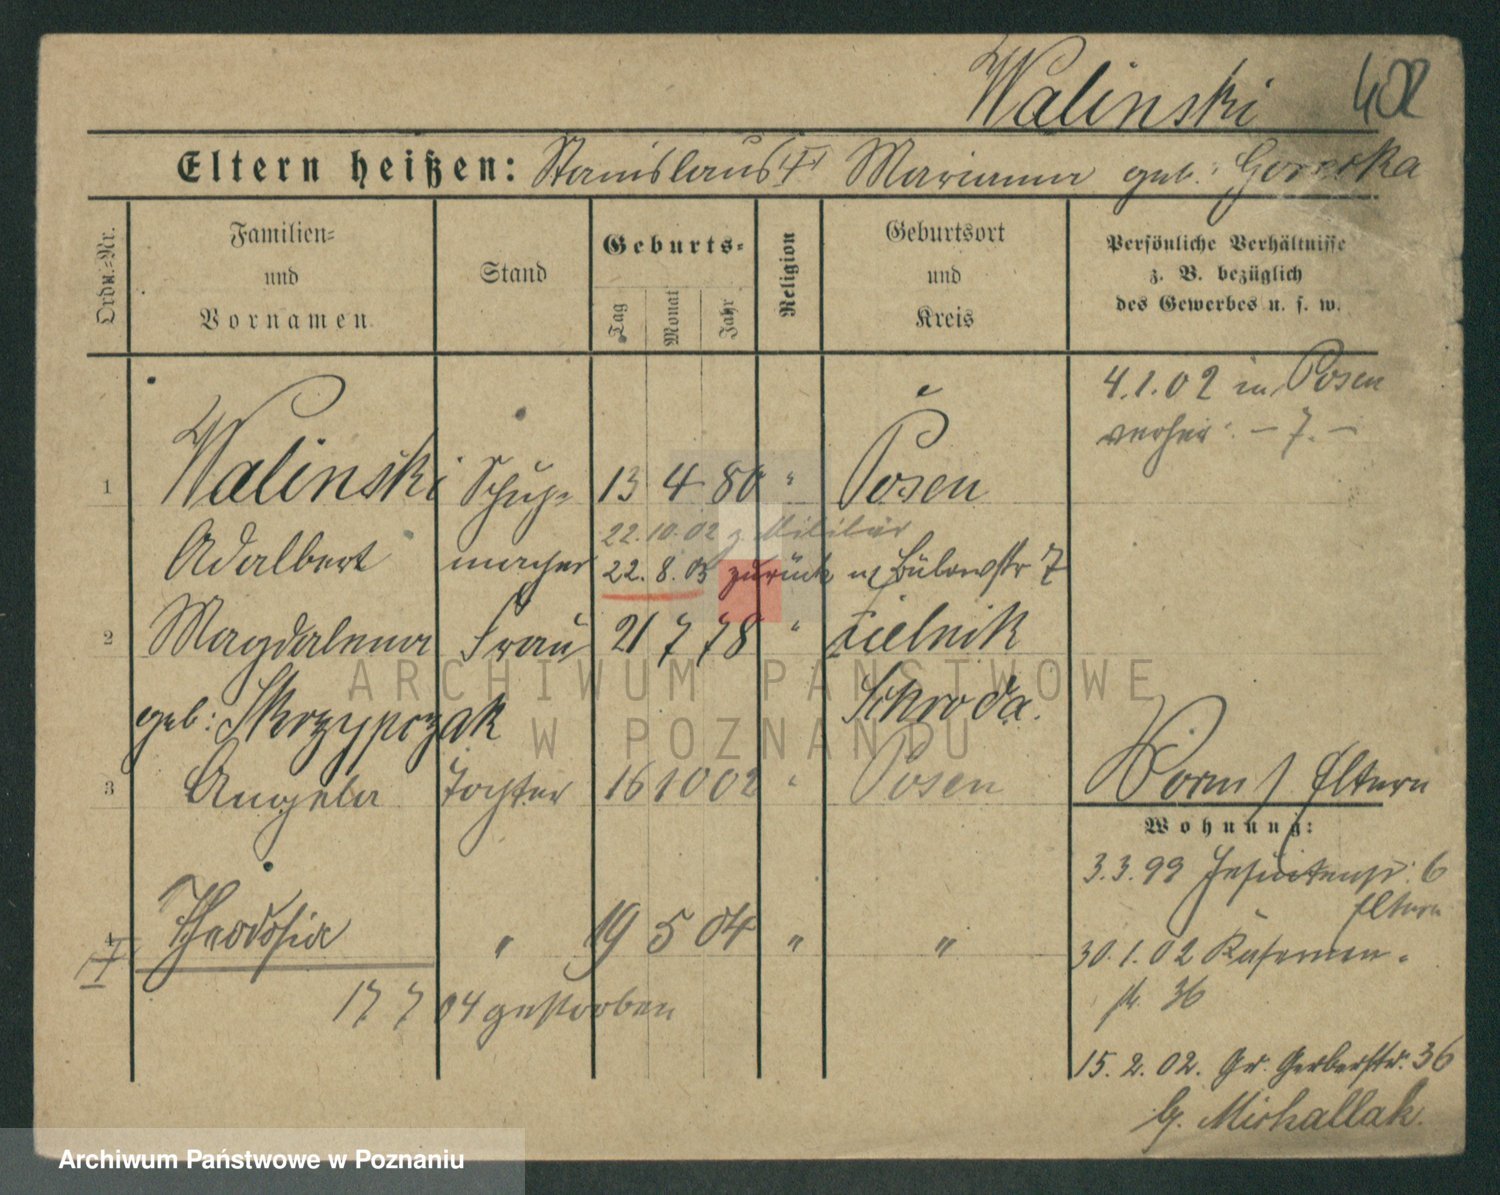 Walinski 402
Eltern heißen: Stanislaus Marianna geb. Gorecka
Ordn.=Nr.
Familien=
und
Vornamen
Stand
Geburts=
Tag
Monat
Jahr
Religion
Geburtsort
und
Kreis
Persönliche Verhältnisse
z. B. bezüglich
des Gewerbes u. s. w.
4.1.02 in Posen
verheir. – 7. –
1 Walinski Schuh= 13 4 80 " Posen
22.10.02 z. Militär
Adalbert macher 22.8.03 zurück n Bülowstr 7
2 Magdalena Frau 21 7 78 " Zielnik
geb: Skrzypczak Schroda.
3 Angela Tochter 16 10 02 " Posen
Worm s. Eltern
Wohnung:
3.3.99 Jesuitenstr. 6
Eltern
4 Theodosia " 19 5 04 " "
30.1.02 Kasernen-
str. 36
17 7 04 gestorben
15.2.02. Gr. Gerberstr. 36
b. Michallak.
ARCHIWUM PAŃSTWOWE
W POZNANIU
Archiwum Państwowe w Poznaniu